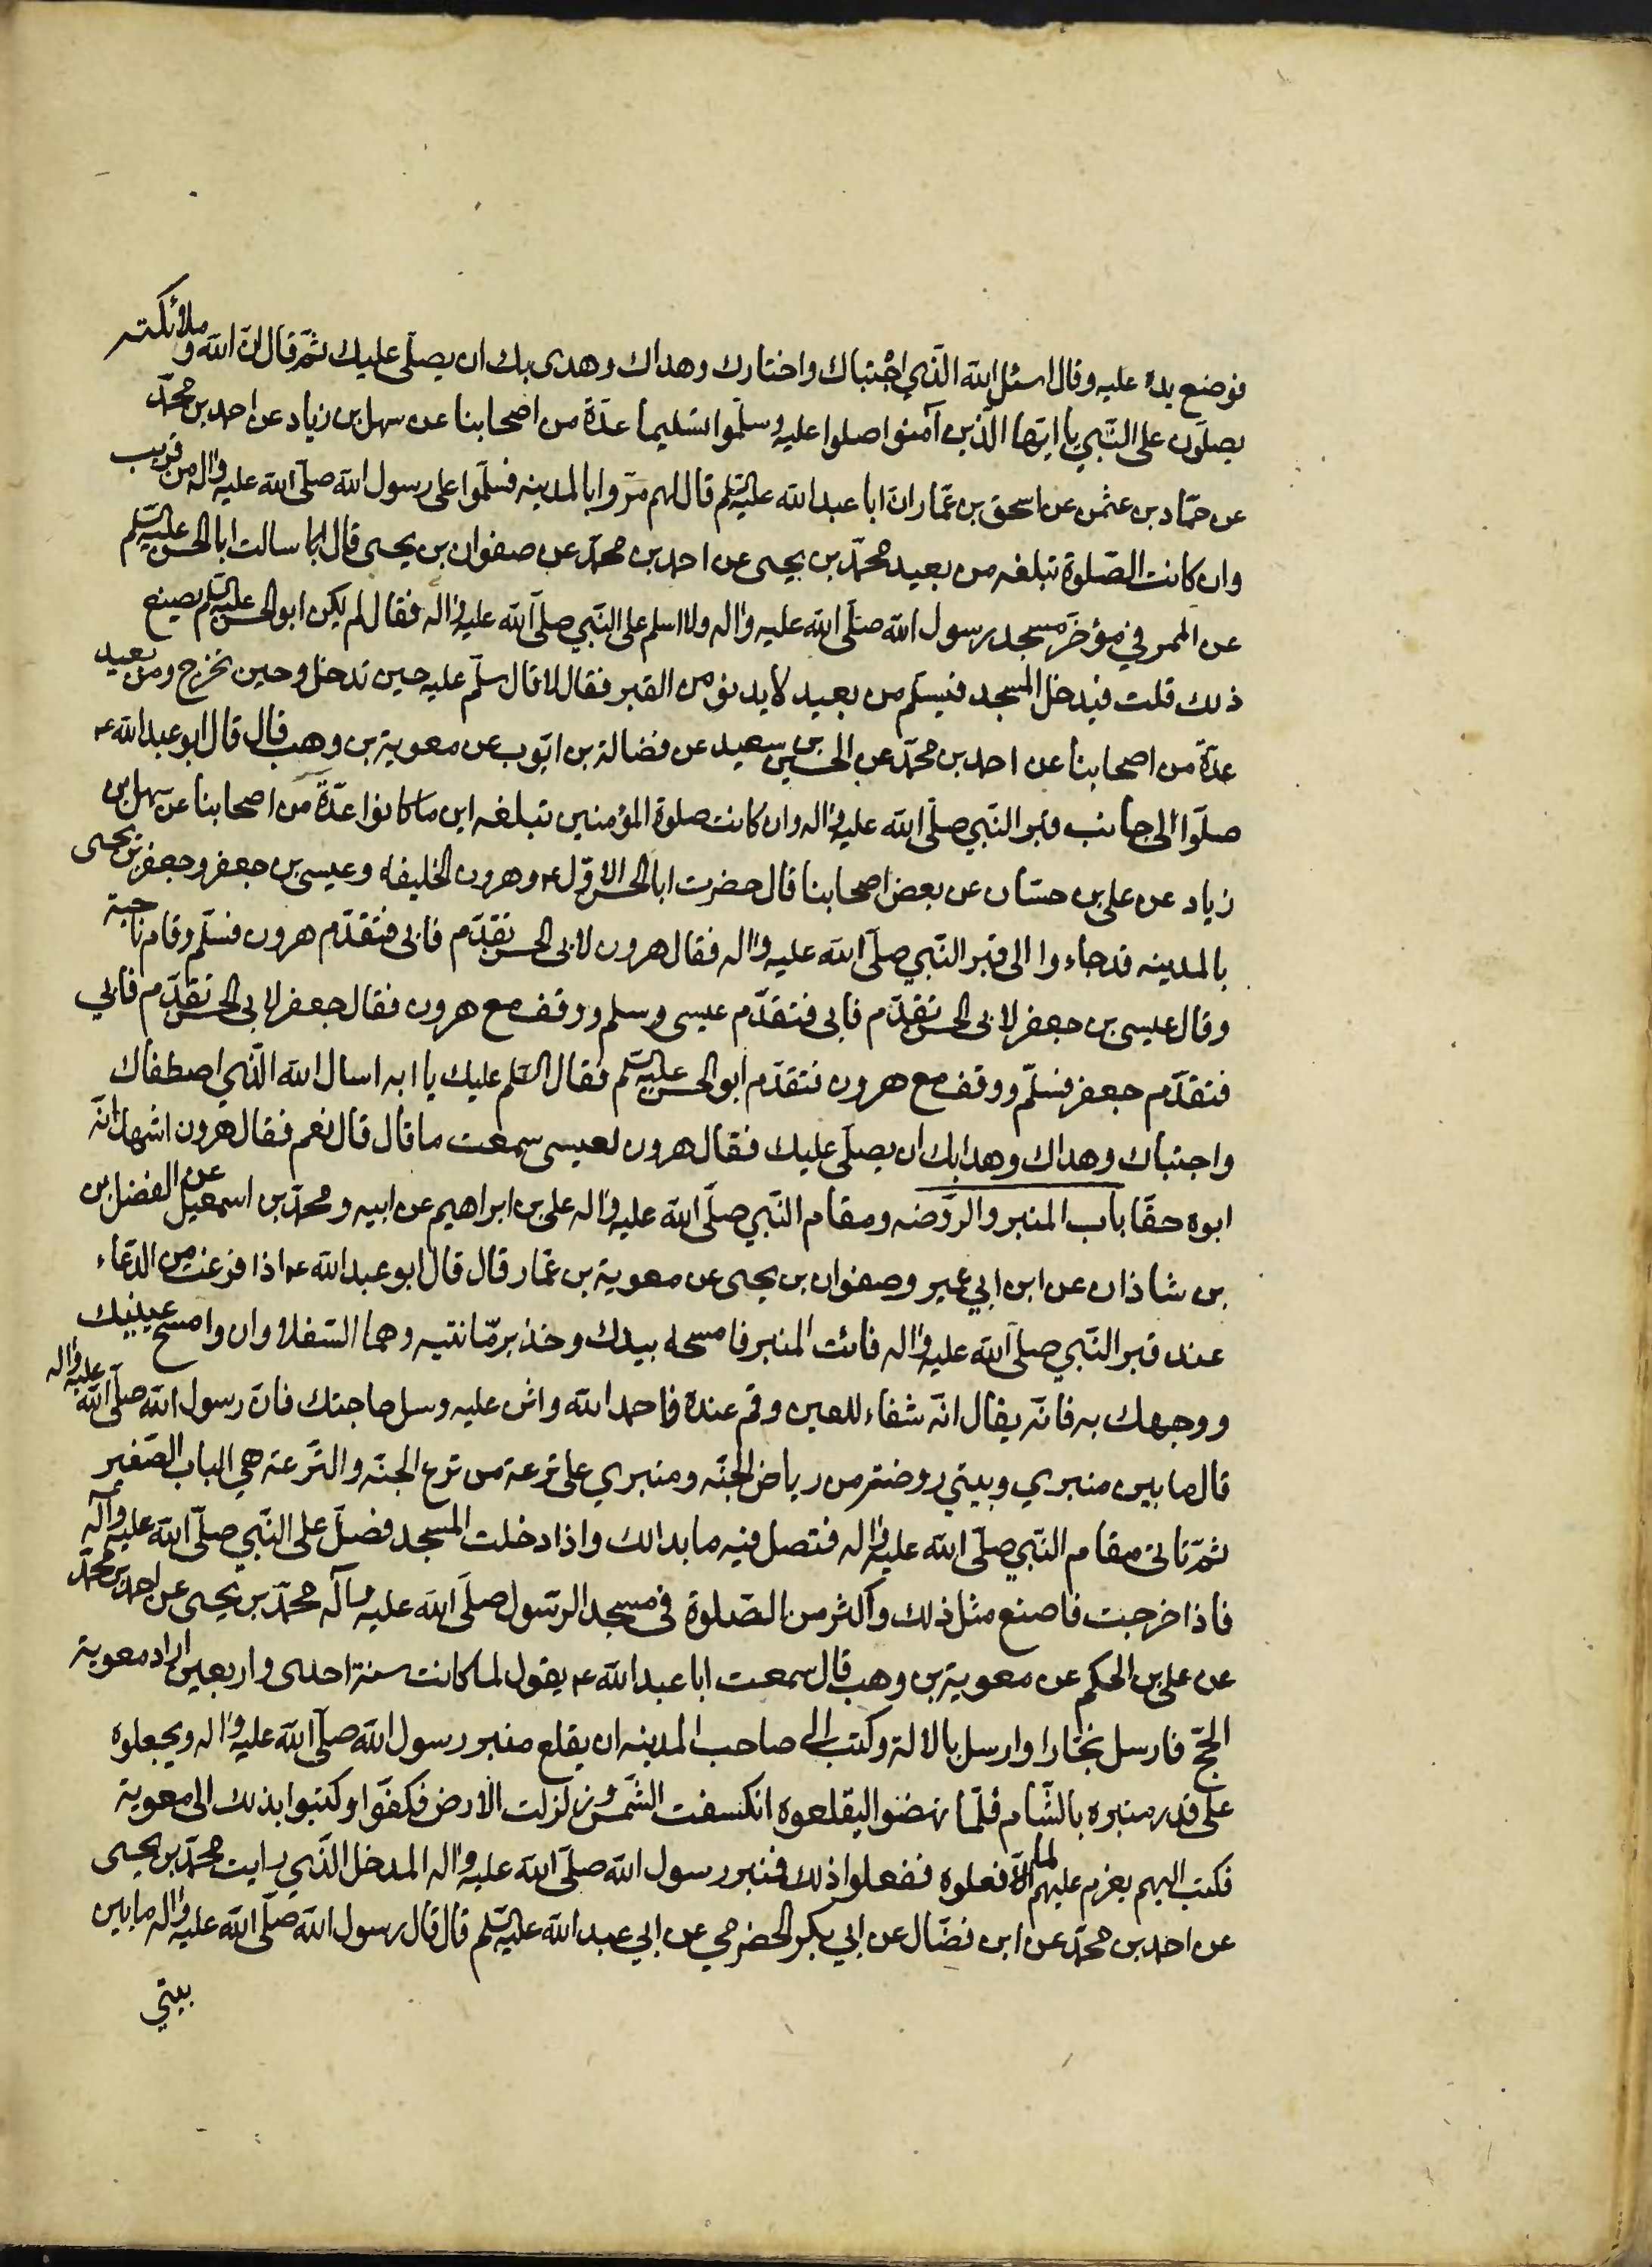 فوضع يده عليه وقال اسئل الله الّذي اجْتباك واختارك وهداك وهدى بك ان يصلّى عليك ثمّ قال انّ الله وملائكته
يصلّون على النّبي يا ايّها الّذين آمنوا صلوا عليه وسلّموا تسليما عدّة من اصحابنا عن سهل بن زياد عن احمد بن محمّد
عن حمّاد بن عثمن عن اسحق بن عمّار انّ ابا عبد الله عليه السّلم قال لهم مرّوا بالمدينه فسلّموا على رسول الله صلّى الله عليه واله من قريب
وان كانت الصّلوة تبلغه من بعيد محمّد بن يحيى عن احمد بن محمّد عن صفوان بن يحيى قال سالت ابا الحسن عليه السّلم
عن الممر في مؤخر مسجد رسول الله صلّى الله عليه واله ولا اسلم على النّبي صلّى الله عليه واله فقال لم يكن ابو الحسن عليه السّلم يصنع
ذلك قلت فيدخل المسجد فيسلّم من بعيد لا يدنو من القبر فقال لا قال سلّم عليه حين تدخل وحين تخرج ومن بعيد
عدّة من اصحابنا عن احمد بن محمّد عن الحسين بن سعيد عن فضالة بن ايّوب عن معوية بن وهب قال قال ابو عبد الله ع
صلّوا الى جانب قبر النّبي صلّى الله عليه واله وان كانت صلوة المؤمنين تبلغه اين ما كانوا عدّة من اصحابنا عن سهل بن
زياد عن على بن حسّان عن بعض اصحابنا قال حضرت ابا الحسن الاوّل ع وهرون الخليفه وعيسى بن جعفر وجعفر بن يحيى
بالمدينه قد جاءوا الى قبر النّبي صلّى الله عليه واله فقال هرون لابى الحسن تقدّم فابى فتقدّم هرون فسلّم وقام ناحية
وقال عيسى بن جعفر لابى الحسن تقدّم فابى فتقدّم عيسى وسلم ووقف مع هرون فقال جعفر لابى الحسن تقدّم فابي
فتقدّم جعفر فسلّم ووقف مع هرون فتقدّم ابو الحسن عليه السّلم فقال السّلم عليك يا ابه اسال الله الّذي اصطفاك
واجتباك وهداك وهدا بك ان يصلّى عليك فقال هرون لعيسى سمعت ما قال قال نعم فقال هرون اشهد انّه
ابوه حقّا باب المنبر والرّوضه ومقام النّبي صلّى الله عليه واله على بن ابراهيم عن ابيه ومحمّد بن اسمعيل عن الفضل بن
بن شاذان عن ابن ابي عمير وصفوان بن يحيى عن معوية بن عمّار قال قال ابو عبد الله ع اذا فرغت من الدّعاء
عند قبر النّبي صلّى الله عليه واله فائت المنبر فامسحه بيدك وخذ برمّانتيه وهما السّفلاوان وامسح عينيك
ووجهك به فانّه يقال انّه شفاء للعين وقم عنده فاحمد الله واثن عليه وسل حاجتك فانّ رسول الله صلّى الله عليه واله
قال ما بين منبري وبيتي روضة من رياض الجنّه ومنبري على ترعة من ترع الجنّه والتّرعة هي الباب الصّغير
ثمّ تاتى مقام النّبي صلّى الله عليه واله فتصل فيه ما بدا لك واذا دخلت المسجد فصلّ على النّبي صلّى الله عليه وآله
فاذا خرجت فاصنع مثل ذلك واكثر من الصّلوة فى مسجد الرّسول صلّى الله عليه وآله محمّد بن يحيى عن احمد بن محمّد
عن على بن الحكم عن معوية بن وهب قال سمعت ابا عبد الله ع يقول لما كانت سنة احدى واربعين اراد معوية
الحجّ فارسل نجّارا وارسل بالالة وكتب الى صاحب المدينه ان يقلع منبر رسول الله صلّى الله عليه واله ويجعلوه
على قدر منبره بالشّام فلمّا نهضوا ليقلعوه انكسفت الشّمس وزلزلت الارض فكفّوا وكتبوا بذلك الى معوية
فكتب اليهم يعزم عليهم لما الّا فعلوه ففعلوا ذلك فمنبر رسول الله صلّى الله عليه واله المدخل الّذي رايت محمّد بن يحيى
عن احمد بن محمّد عن ابن فضّال عن ابي بكر الحضرمي عن ابي عبد الله عليه السّلم قال قال رسول الله صلّى الله عليه واله ما بين
بيتي